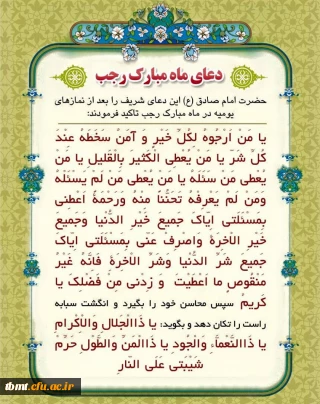 دعای ماه مبارک رجب
حضرت امام صادق (ع) این دعای شریف را بعد از نمازهای
یومیه در ماه مبارک رجب تاکید فرمودند:
یا مَنْ اَرْجُوهُ لِکُلِّ خَیْرٍ وَ آمَنُ سَخَطَهُ عِنْدَ
کُلِّ شَرٍّ یا مَنْ یُعْطِی الْکَثیرَ بِالْقَلیلِ یا مَنْ
یُعْطی مَنْ سَئَلَهُ یا مَنْ یُعْطی مَنْ لَمْ یَسْئَلْهُ
وَمَنْ لَمْ یَعْرِفْهُ تَحَنُّناً مِنْهُ وَرَحْمَةً اَعْطِنی
بِمَسْئَلَتی اِیّاکَ جَمیعَ خَیْرِ الدُّنْیا وَجَمیعَ
خَیْرِ الْاخِرَةِ وَاصْرِفْ عَنّی بِمَسْئَلَتی اِیّاکَ
جَمیعَ شَرِّ الدُّنْیا وَشَرِّ الْاخِرَةِ فَاِنَّهُ غَیْرُ
مَنْقُوصٍ ما اَعْطَیْتَ وَ زِدْنی مِنْ فَضْلِکَ یا
کَریمُ سپس محاسن خود را بگیرد و انگشت سبابه
راست را تکان دهد و بگوید: یا ذَاالْجَلالِ وَالْاِکْرامِ
یا ذَاالنَّعْماءِ وَالْجُودِ یا ذَاالْمَنِّ وَالطَّوْلِ حَرِّمْ
شَیْبَتی عَلَی النّارِ
tbmt.cfu.ac.ir